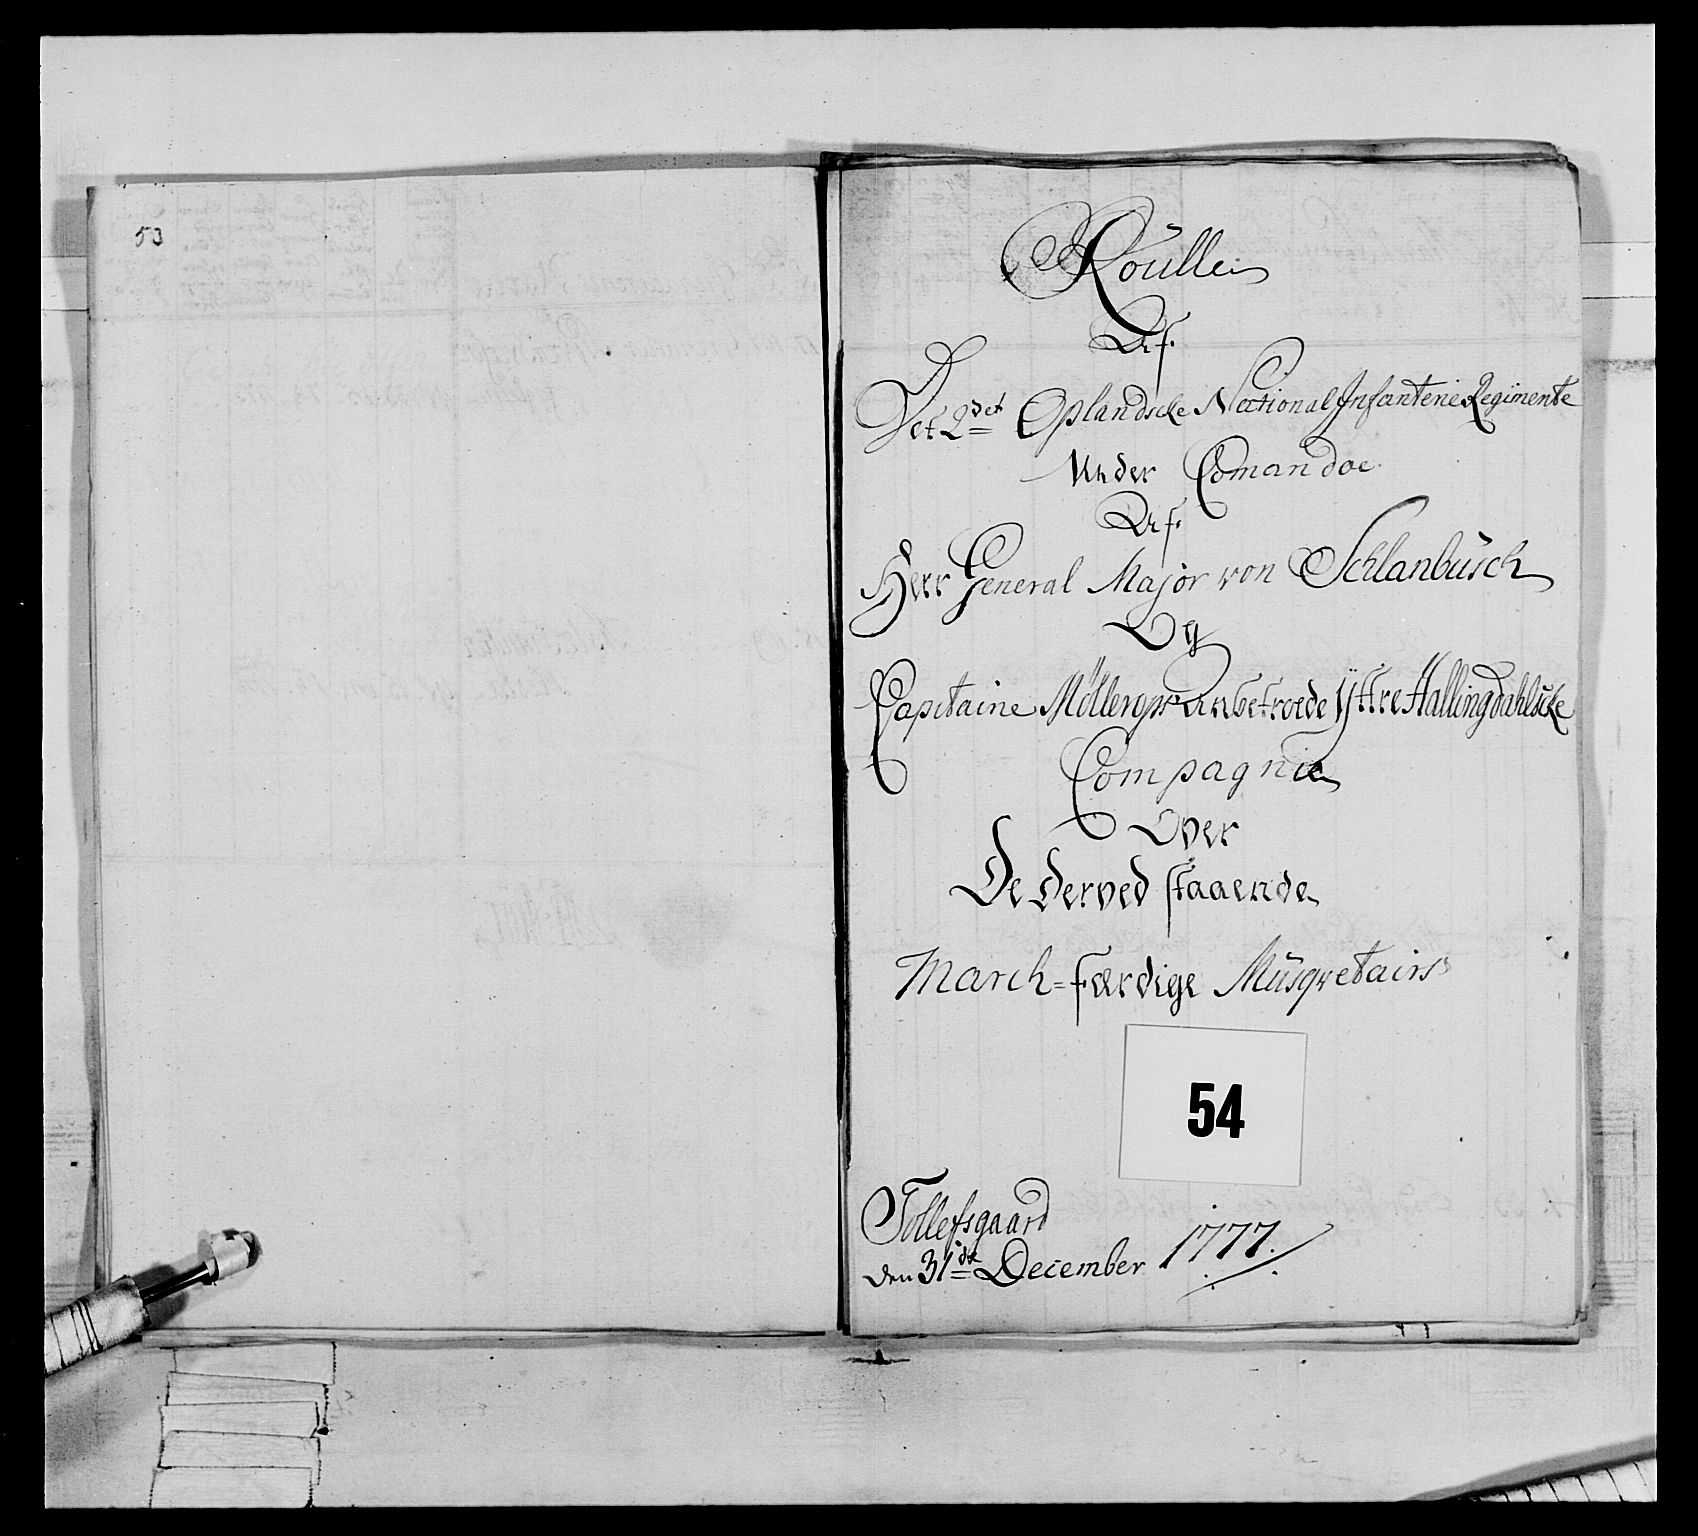 53
Roulle
Af
Det 2det Oplandske National Infanterie Regimente
Under Comandoe
Af
Herr General Major von Schlanbusch
Og
Capitaine Möllerops anbetroede Yttre Hallingdahlske
Compagnie
Over
De Derved staaende
March=færdige Musqvetairs
54
Tollefsgaard
den 31de December 1777.